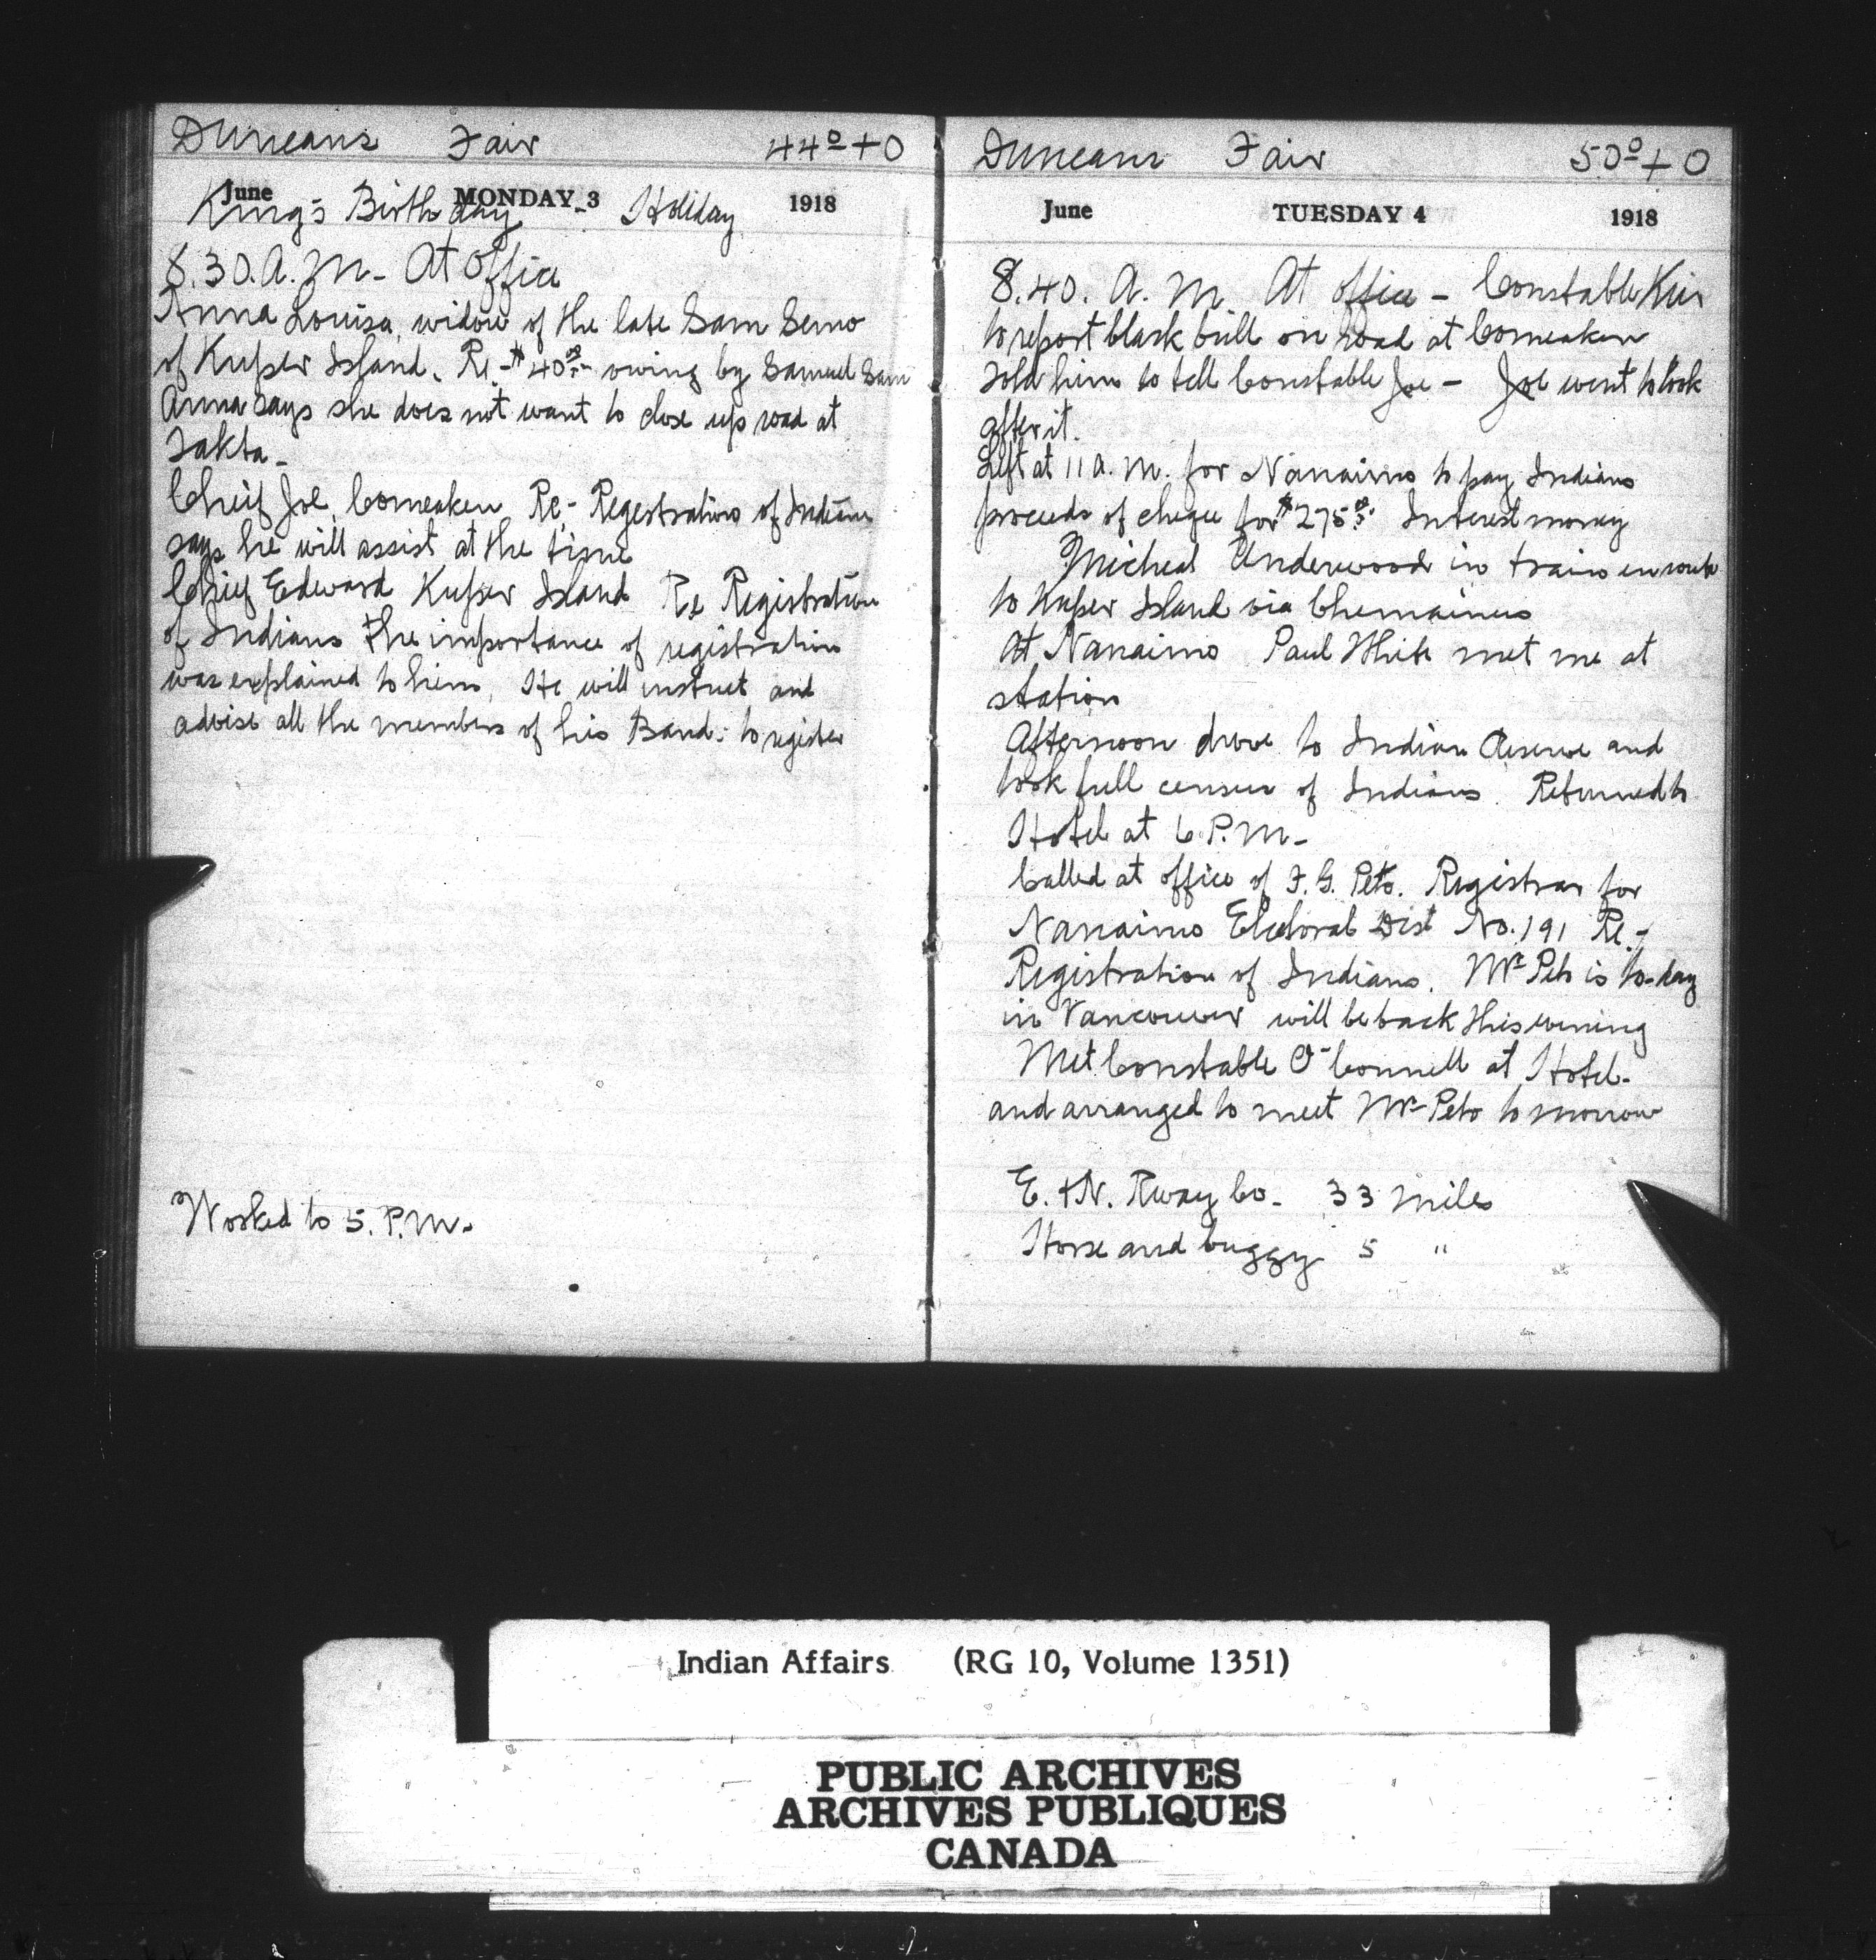 Duncans Fair 44° + 0
June MONDAY 3 1918
King's Birthday - Holiday
8.30. A. M - At Office
Anna Louisa, widow of the late Sam
of Kuper Island. Re - $40.00 owing by Samuel Sam
Anna says she does not want to close up road at
Takta -
Cheif Joe, Comeaken Re - Regestration of Indians
says he will assist at the time
Chief Edward Kuper Island Re Registration
of Indians The importance of registration
was explained to him, He will instruct and
advise all the members of his Band: to register
Worked to 5. P.M.
Duncans Fair 50° + 0
June TUESDAY 4 1918
8.40. A. M At office - Constable
to report black bull on road at Comeaken
Told him to tell Constable Joe - Joe went to look
after it.
Left at 11 a. m. for Nanaimo to pay Indians
proceeds of cheque for $275.00 Interest money
Micheal Underwood in train en route
to Kuper Island via Chemainus
At Nanaimo Paul White met me at
station
Afternoon drove to Indian Reserve and
took full census of Indians. Returned to
Hotel at 6 P.M -
Called at office of F. G. Peto. Registrar for
Nanaimo Electoral Dist No. 191 Re -
Registration of Indians. Mr Peto is to-day
in Vancouver will be back this evening
Met Constable O'Connell at Hotel -
and arranged to meet Mr Peto to morrow
E. + N. Rway Co - 33 Miles
Horse and buggy 5 "
Indian Affairs (RG 10, Volume 1351)
PUBLIC ARCHIVES
ARCHIVES PUBLIQUES
CANADA